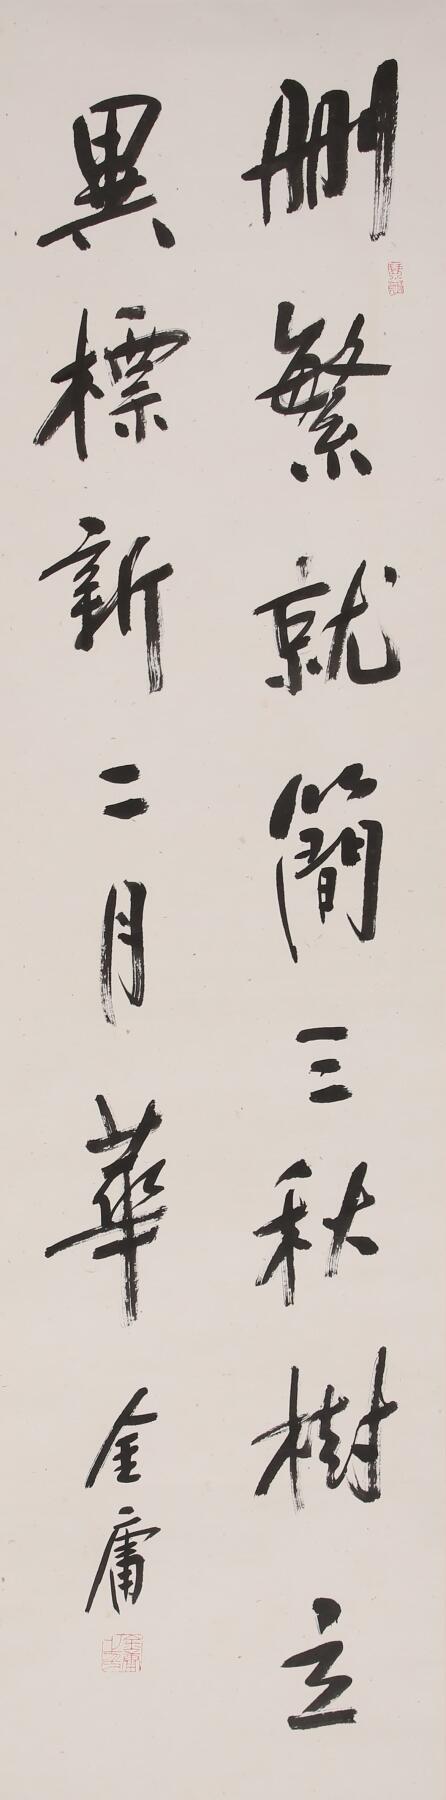 刪繁就簡三秋樹立
異標新二月華
金庸